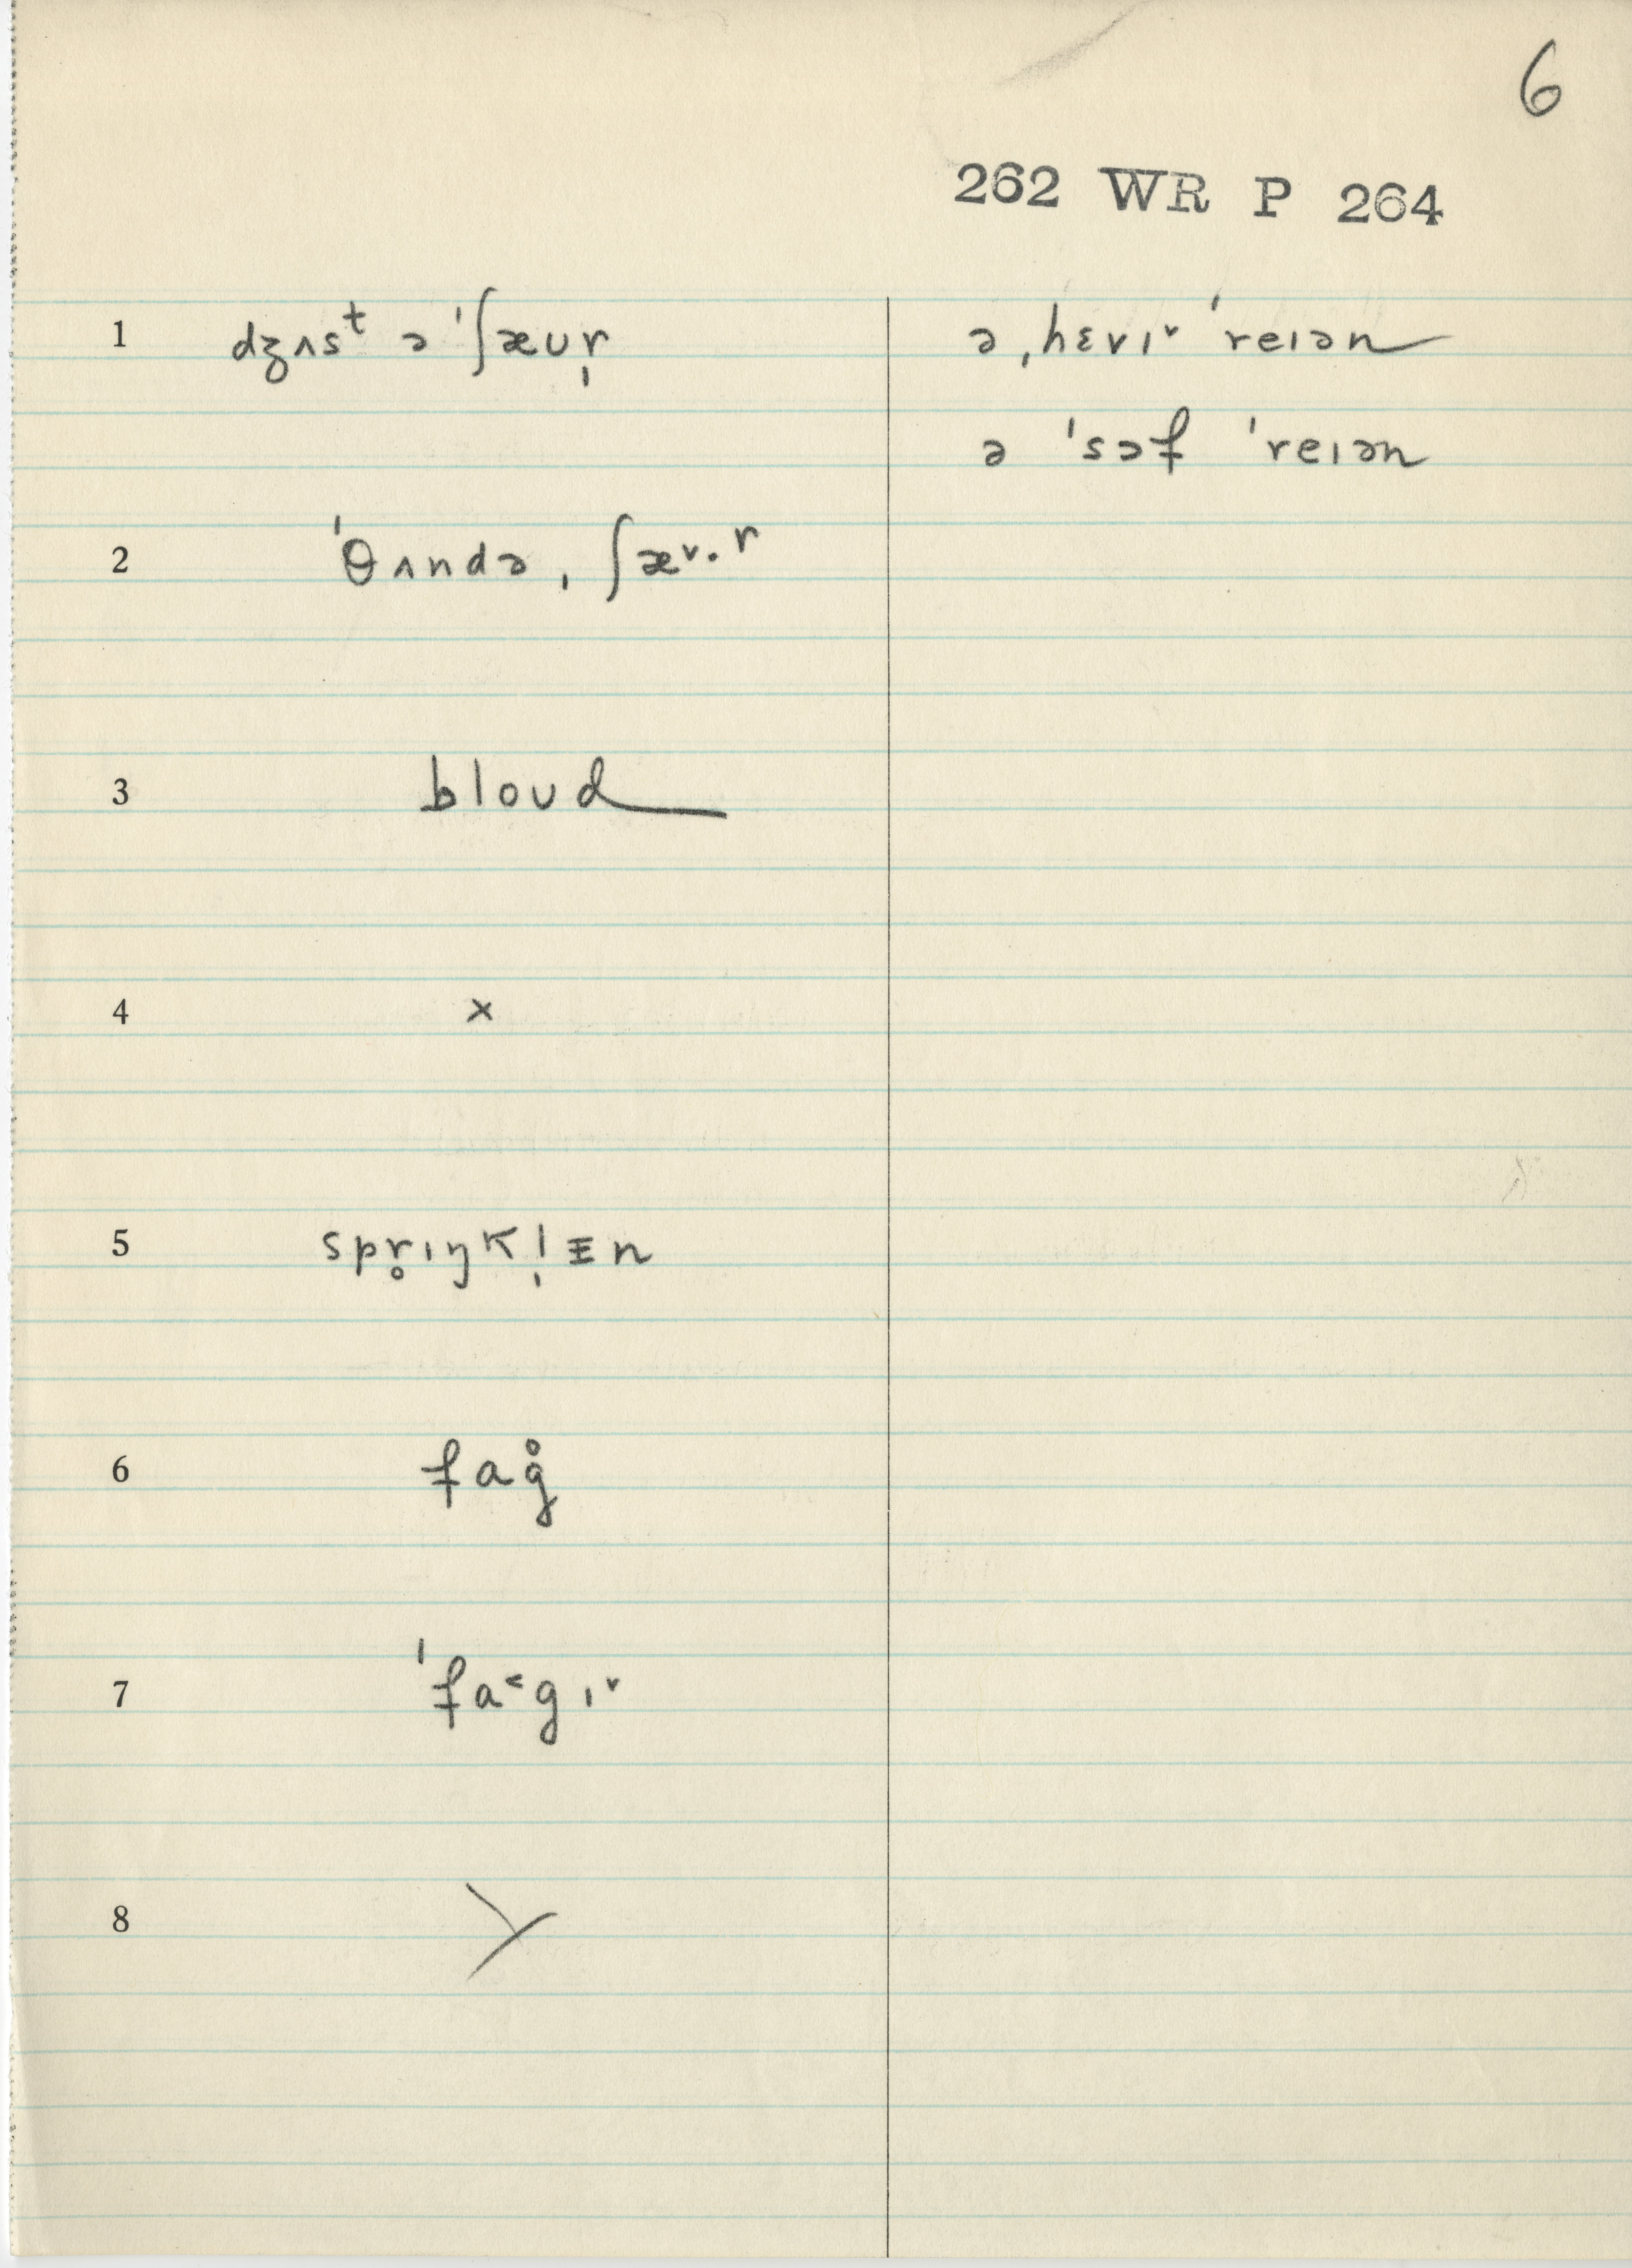 6
262 WR P 264
1 dʒʌsᵗ ə ˈʃæʊr̩ ə ˌhɛvɪ˅ ˈreɪən
ə ˈsɔf ˈreɪən
2 ˈθʌndə ˌʃæ˅·ʳ
3 bloʊd
4 ×
5 spr̥ɪŋkl̩ɪn
6 fag̊
7 ˈfa˂gɪ˅
8